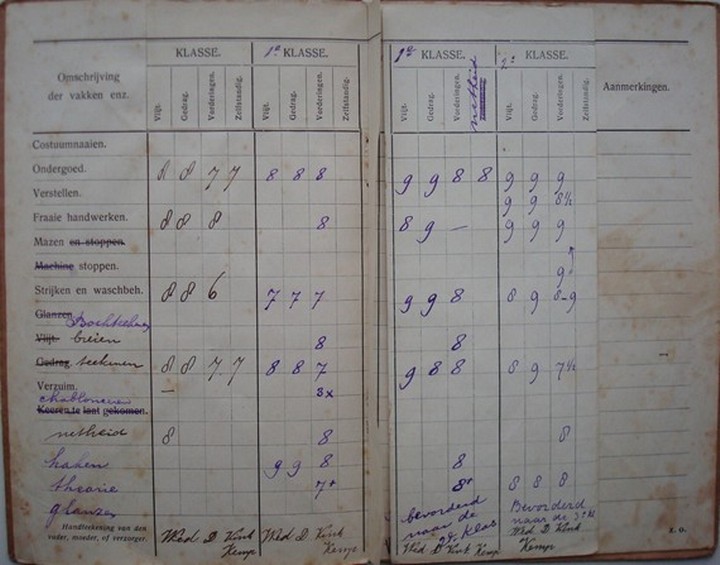 KLASSE. 1e KLASSE. 1e KLASSE. 2e KLASSE.
Omschrijving der vakken enz. Vlijt. Gedrag. Vorderingen. Zelfstandig. Vlijt. Gedrag. Vorderingen. Zelfstandig. Vlijt. Gedrag. Vorderingen. netheid Vlijt. Gedrag. Vorderingen. Aanmerkingen.
Costuumnaaien.
Ondergoed. 8 8 7 7 8 8 8 9 9 8 8 9 9 9
Verstellen. 9 9 8½
Fraaie handwerken. 8 8 8 8 8 9 — 9 9 9
Mazen en stoppen.
Machine stoppen. 9
Strijken en waschbeh. 8 8 6 7 7 7 9 9 8 8 9 8-9
Glanzen
Vlijt. breien 8 8
Gedrag teekenen 8 8 7 7 8 8 7 9 8 8 8 9 7½
Verzuim. — 3x
Keeren te laat gekomen.
netheid 8 8 8
haken 9 9 8 8
theorie 7+ 8+ 8 8 8
glanzen bevorderd Bevorderd
naar de naar de 3e kl
2e klas
Handteekening van den
vader, moeder, of verzorger. Wed D Vink Kemp Wed D Vink Kemp Wed D Vink Kemp Wed D Vink Kemp z. o.